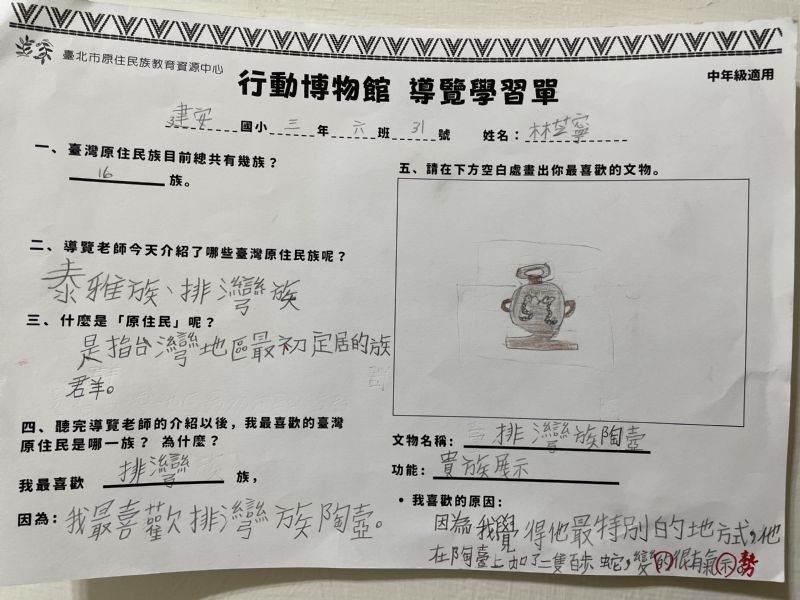 臺北市原住民族教育資源中心
行動博物館 導覽學習單
中年級適用
建安國小三年六班31號 姓名：林芯寧
一、臺灣原住民族目前總共有幾族？
16族。
二、導覽老師今天介紹了哪些臺灣原住民族呢？
泰雅族、排灣族
三、什麼是「原住民」呢？
是指台灣地區最初定居的族
群。
四、聽完導覽老師的介紹以後，我最喜歡的臺灣
原住民是哪一族？ 為什麼？
我最喜歡 排灣 族，
因為：我最喜歡排灣族陶壺。
五、請在下方空白處畫出你最喜歡的文物。
文物名稱：排灣族陶壺
功能：貴族展示
• 我喜歡的原因：
因為我覺得他最特別的地方式，他
在陶壺上加了二隻百步蛇，變的很有氣示。勢